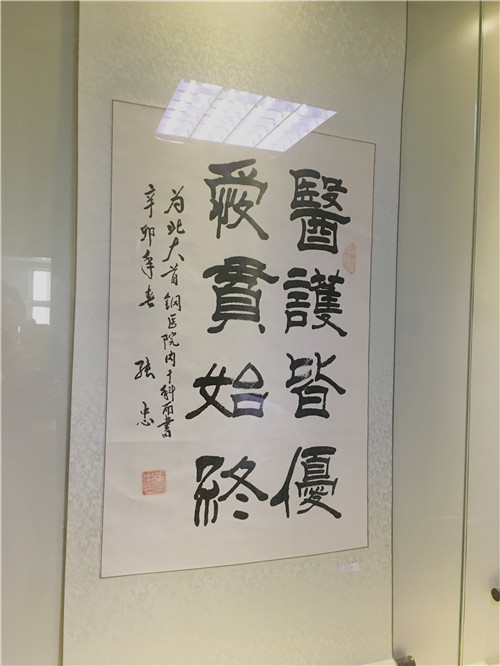 醫護皆優
愛貫始終
為北大首鋼医院内干科而書
辛卯年春 張忠